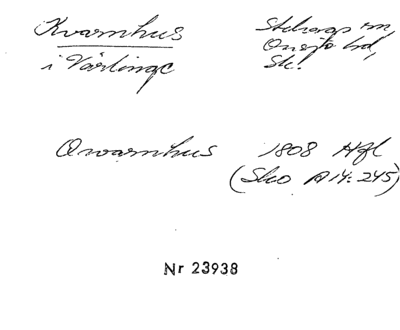 Kvarnhus
i Värlinge
Stehags sn,
Onsjö hd,
Sk.
Qvarnhus 1808 Hfl
(Sko A14:245)
Nr 23938